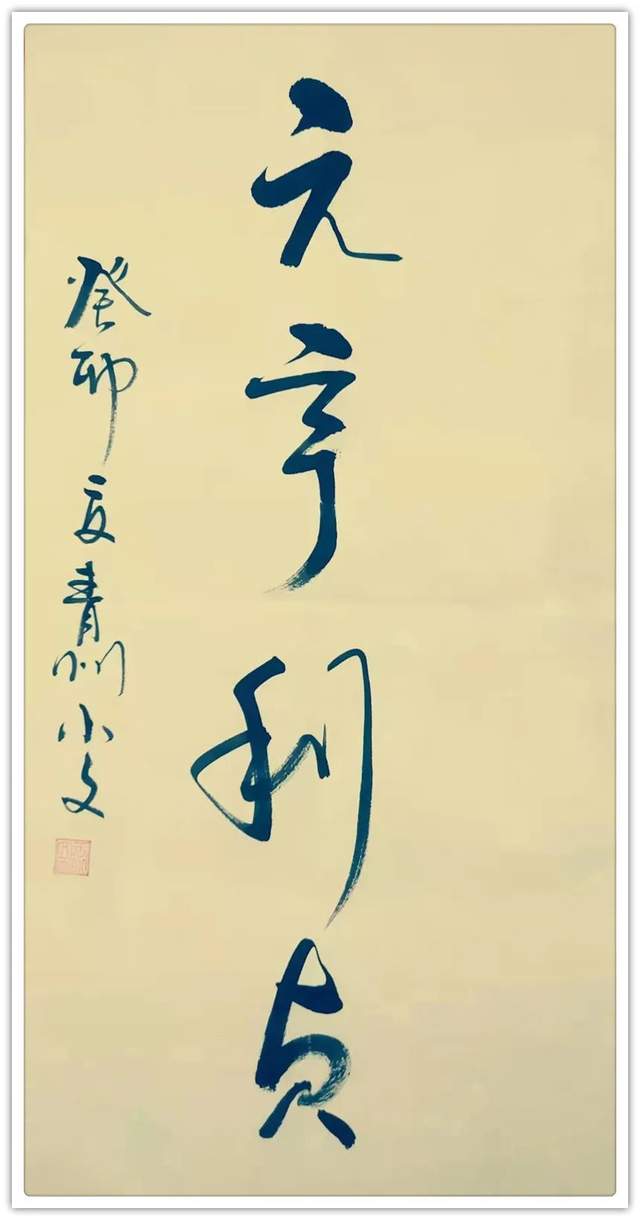 元亨利贞
癸卯夏青州小文